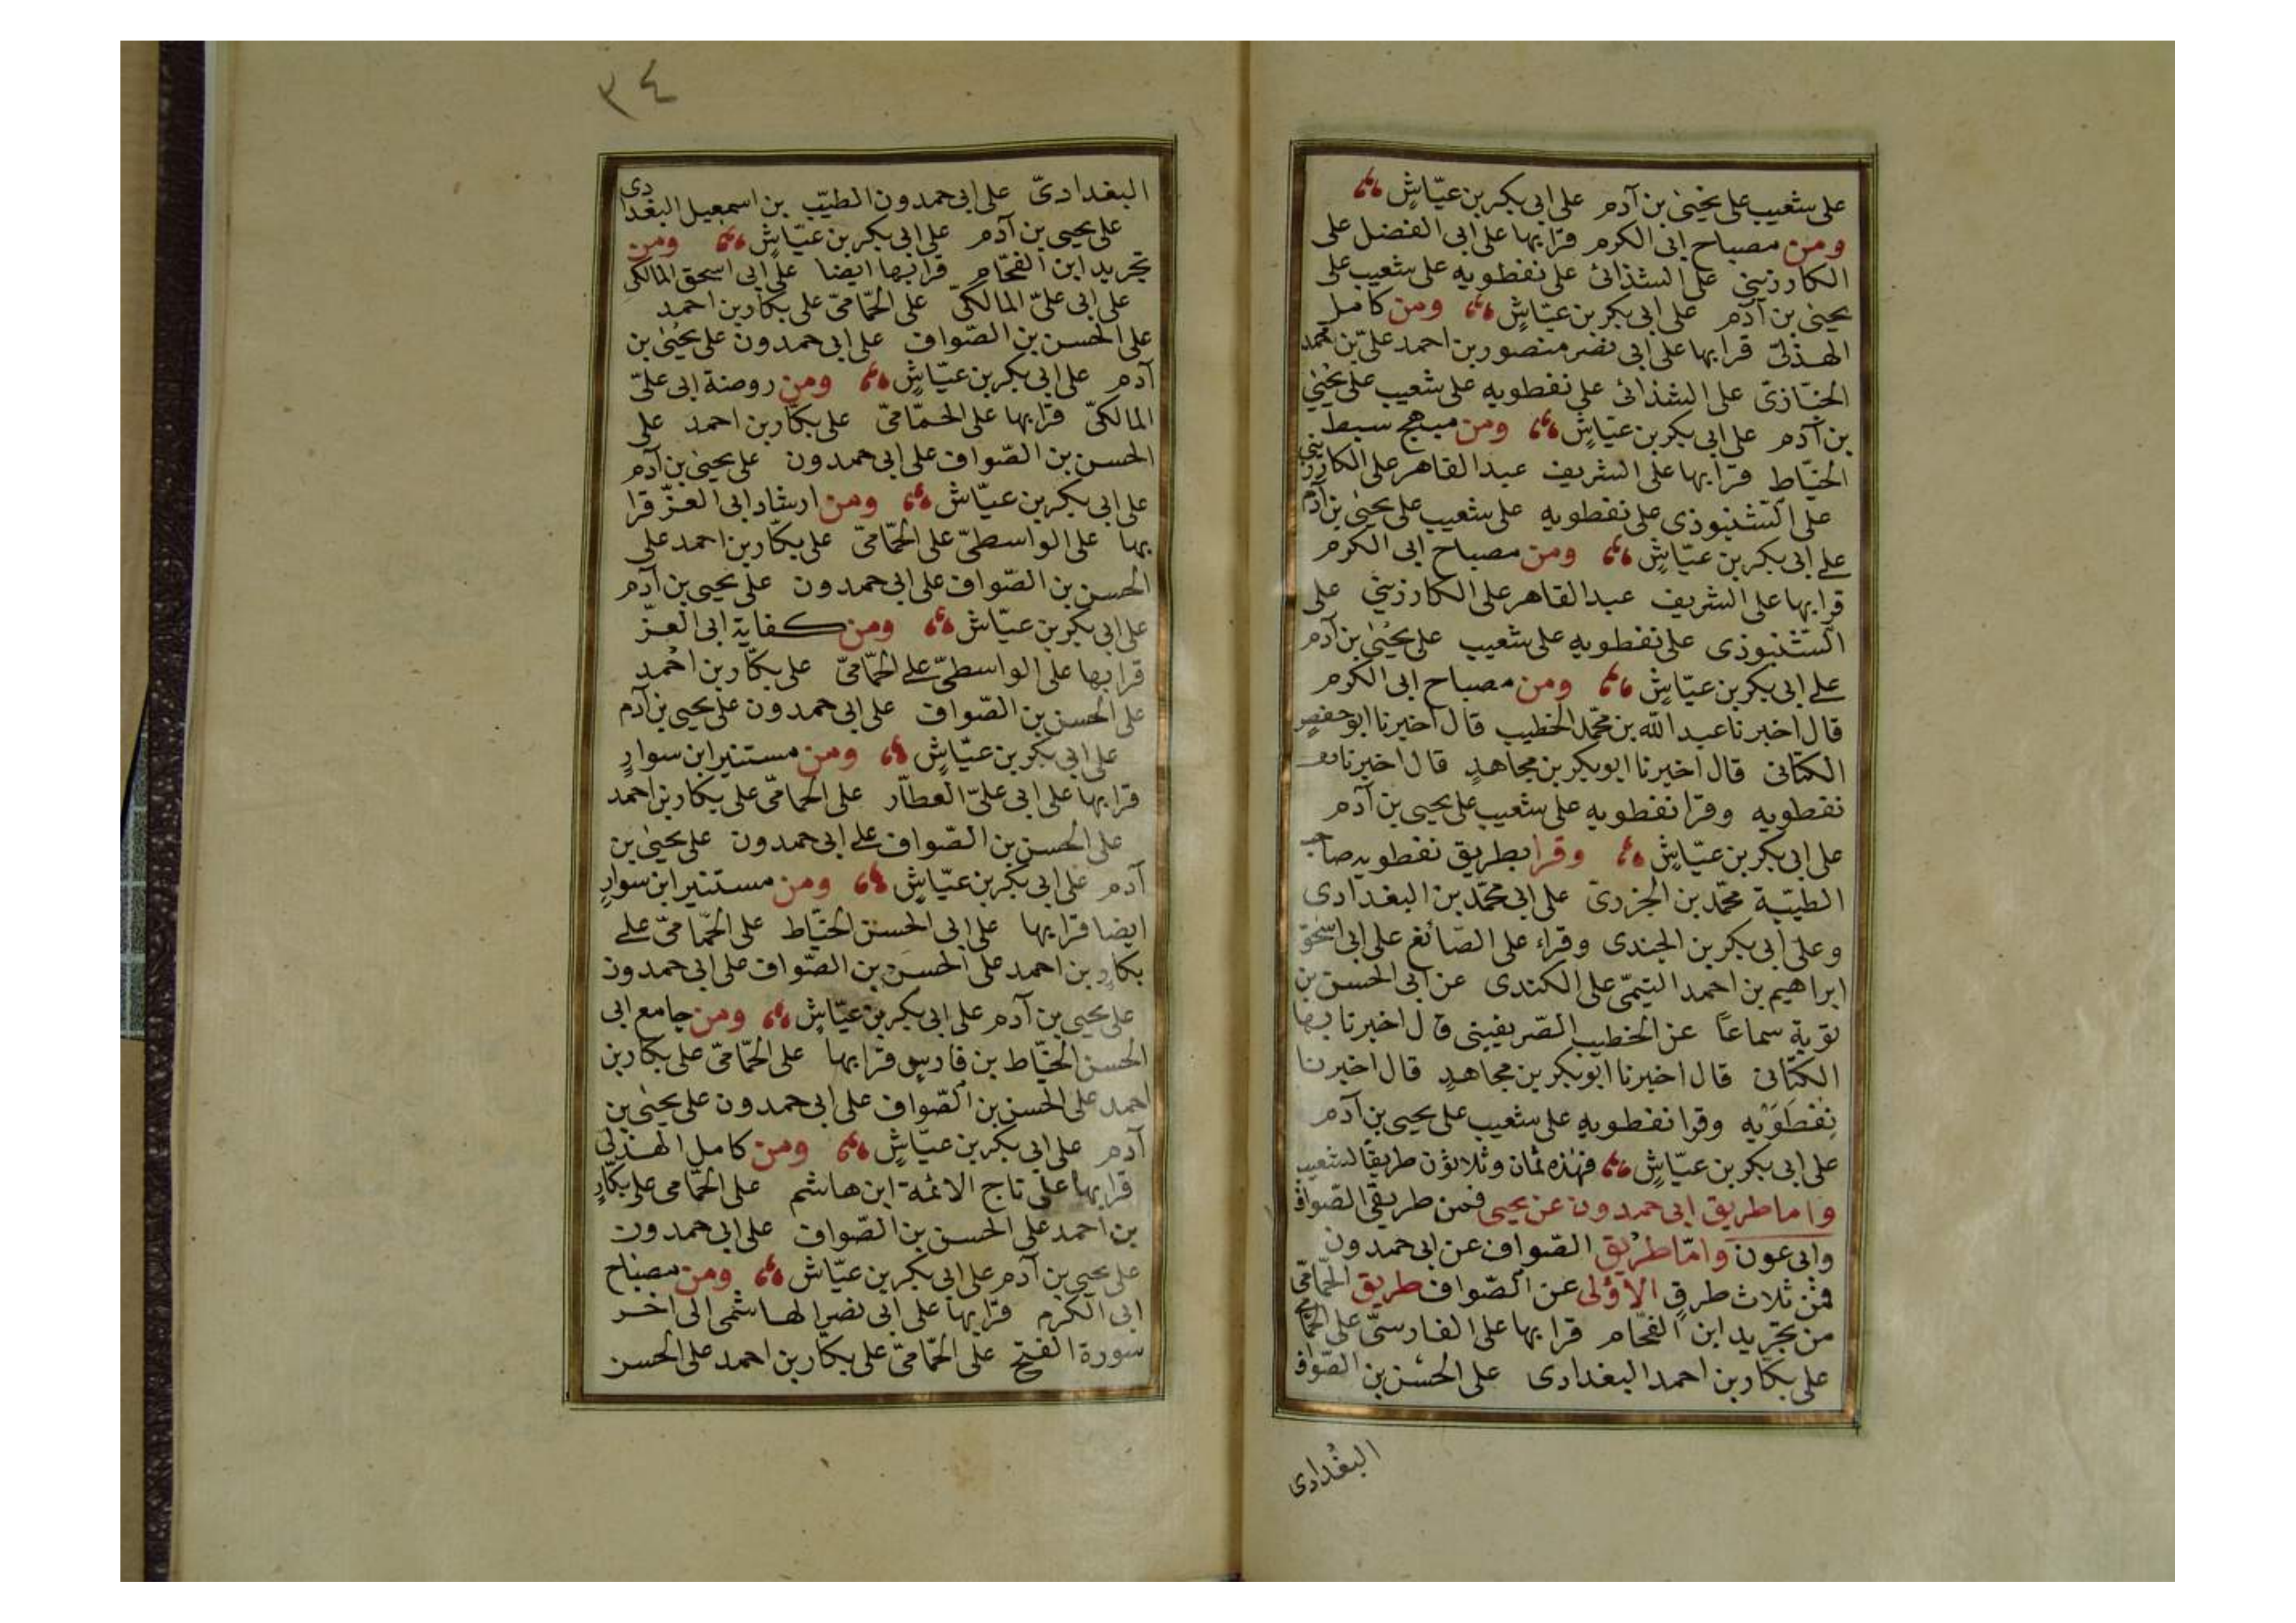 على شعيب على يحيىٰ بن آدم على ابى بكر بن عيّاشٍ
ومن مصباح ابى الكرم قرا بها على ابى الفضل على
الكارزينى على الشذائ على نفطويه على شعيب على
يحيىٰ بن آدم على ابى بكر بن عيّاشٍ ومن كامل
الهذلىّ قرا بها على ابى نصر منصور بن احمد على بن محمد
الخبّازىّ على الشذائ على نفطويه على شعيب على يحيىٰ
بن آدم على ابى بكر بن عيّاشٍ ومن مبهج سبط
الخيّاط قرا بها على الشريف عبد القاهر على الكارزينى
على الشنبوذى على نفطويه على شعيب على يحيىٰ بن آدم
على ابى بكر بن عيّاشٍ ومن مصباح ابى الكرم
قرا بها على الشريف عبد القاهر على الكارزينى على
الشنبوذى على نفطويه على شعيب على يحيىٰ بن آدم
على ابى بكر بن عيّاشٍ ومن مصباح ابى الكرم
قال اخبرنا عبد الله بن محمّد الخطيب قال اخبرنا ابو حفصٍ
الكتانى قال اخبرنا ابو بكر بن مجاهدٍ قال اخبرنا
نفطويه وقرا نفطويه على شعيب على يحيى بن آدم
على ابى بكر بن عيّاشٍ وقرا بطريق نفطويه صاحب
الطيّبة محمّد بن الجزرىّ على ابى محمّد بن البغدادى
وعلى ابى بكر بن الجندى وقراء على الصّائغ على ابى اسحٰق
ابراهيم بن احمد التيمىّ على الكندى عن ابى الحسن بن
توبة سماعاً عن الخطيب الصّريفينى قال اخبرنا بها
الكتّانى قال اخبرنا ابو بكر بن مجاهدٍ قال اخبرنا
نِفْطَوَيْه وقرا نفطويه على شعيب على يحيى بن آدم
على ابى بكر بن عيّاشٍ فهٰذه ثمان وثلاثون طريقاً لشعيب
واما طريق ابى حمدون عن يحيى فمن طريقى الصّواف
وابى عون وامّا طريق الصّواف عن ابى حمدون
فمن ثلاث طرقٍ الاولى عن الصّواف طريق الحمّامىّ
من تجريد ابن الفحّام قرا بها على الفارسىّ على الحمّامى
على بكّار بن احمد البغدادى على الحسن بن الصّواف
البغدادى
٣٤
البغدادىّ على ابى حمدون الطيّب بن اسمعيل البغدادى
على يحيى بن آدم على ابى بكر بن عيّاشٍ ومن
تجريد ابن الفحّام قرا بها ايضا على ابى اسحق المالكى
على ابى علىّ المالكىّ على الحمّامىّ على بكار بن احمد
على الحسن بن الصّواف على ابى حمدون على يحيىٰ بن
آدم على ابى بكر بن عيّاشٍ ومن روضة ابى علىّ
المالكىّ قرا بها على الحمّامىّ على بكّار بن احمد على
الحسن بن الصّواف على ابى حمدون على يحيىٰ بن آدم
على ابى بكر بن عيّاش ومن ارشاد ابى العزّ قرا
بها على الواسطىّ على الحمّامىّ على بكّار بن احمد على
الحسن بن الصّواف على ابى حمدون على يحيى بن آدم
على ابى بكر بن عيّاش ومن كفاية ابى العزّ
قرا بها على الواسطىّ على الحمّامىّ على بكّار بن احمد
على الحسن بن الصّواف على ابى حمدون على يحيى بن آدم
على ابى بكر بن عيّاشٍ ومن مستنير ابن سوارٍ
قرا بها على ابى علىّ العطّار على الحمامىّ على بكار بن احمد
على الحسن بن الصّواف على ابى حمدون على يحيىٰ بن
آدم على ابى بكر بن عيّاشٍ ومن مستنير ابن سوارٍ
ايضا قرا بها على ابى الحسن الخيّاط على الحمّامىّ على
بكار بن احمد على الحسن بن الصّواف على ابى حمدون
على يحيى بن آدم على ابى بكر بن عيّاشٍ ومن جامع ابى
الحسن الخيّاط بن فارسٍ قرا بها على الحمّامىّ على بكّار بن
احمد على الحسن بن الصّواف على ابى حمدون على يحيىٰ بن
آدم على ابى بكر بن عيّاشٍ ومن كامل الهذلىّ
قرا بها على تاج الائمة ابن هاشم على الحمّامى على بكّارٍ
بن احمد على الحسن بن الصّواف على ابى حمدون
على يحيى بن آدم على ابى بكر بن عيّاش ومن مصباح
ابى الكرم قرا بها على ابى نصر الهاشمى الى اخر
سورة الفتح على الحمّامىّ على بكّار بن احمد على الحسن